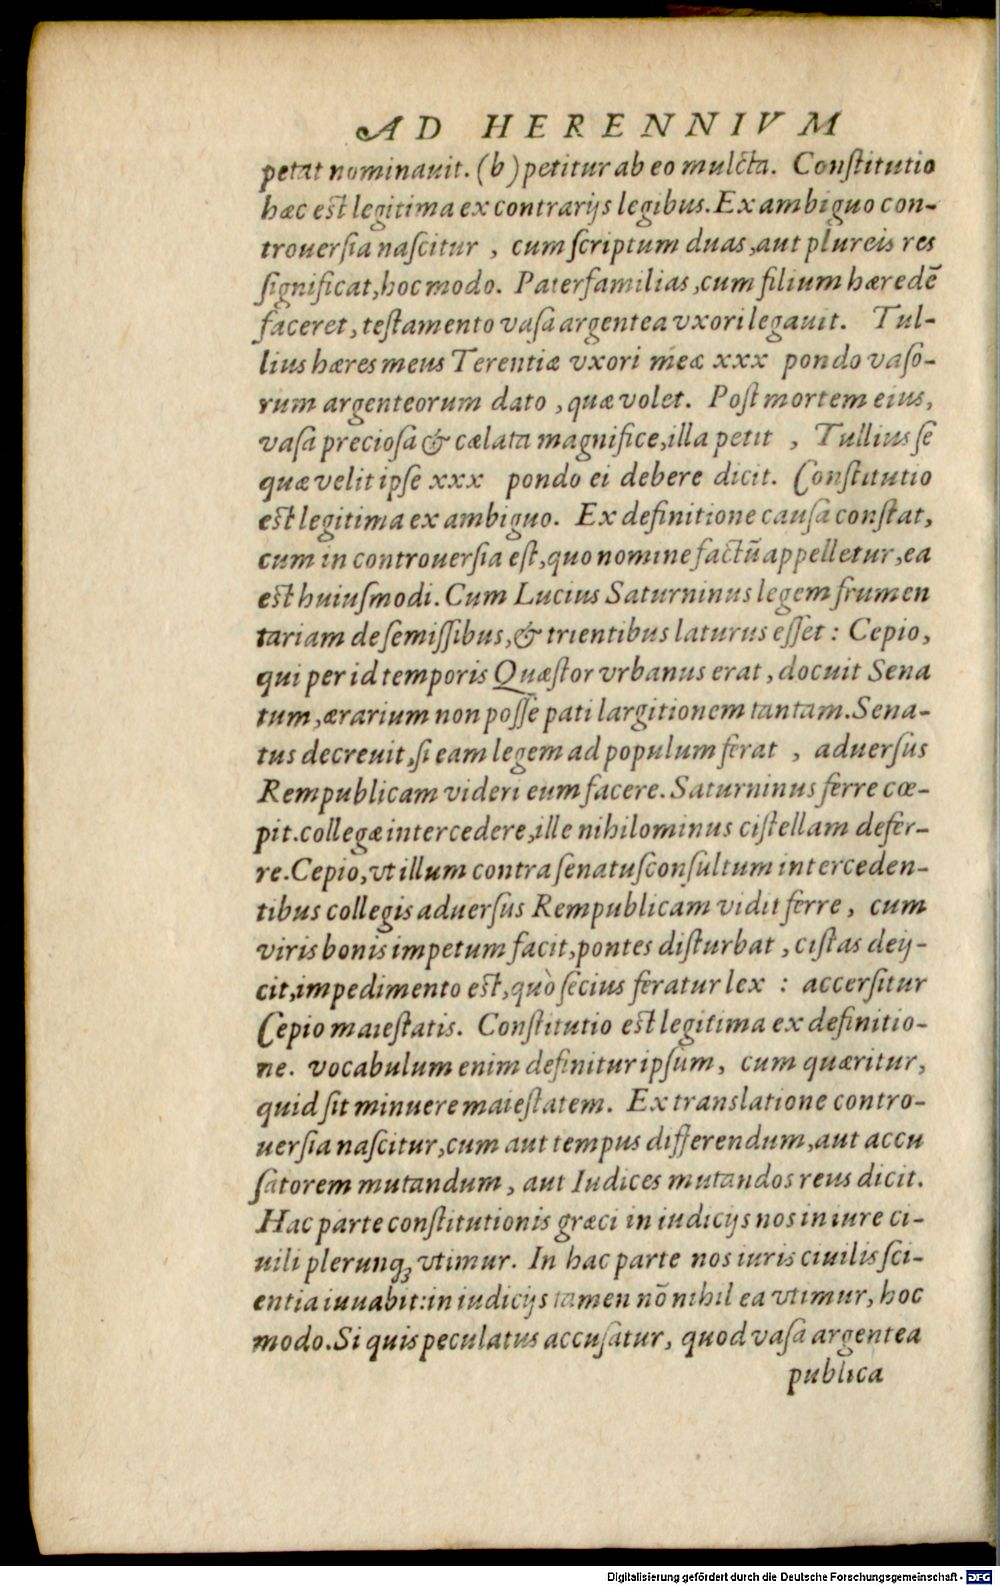 AD HERENNIVM
petat nominauit. (b) petitur ab eo mulcta. Conſtitutio
hæc eſt legitima ex contrarijs legibus. Ex ambiguo con-
trouerſia naſcitur , cum ſcriptum duas, aut plureis res
ſignificat, hoc modo. Paterfamilias, cum filium hæredē
faceret, teſtamento vaſa argentea vxori legauit. Tul-
lius hæres meus Terentiæ vxori meæ xxx pondo vaſo-
rum argenteorum dato , quæ volet. Poſt mortem eius,
vaſa precioſa & cælata magnifice, illa petit , Tullius ſe
quæ velit ipſe xxx pondo ei debere dicit. Conſtitutio
eſt legitima ex ambiguo. Ex definitione cauſa conſtat,
cum in controuerſia eſt, quo nomine factū appelletur, ea
eſt huiuſmodi. Cum Lucius Saturninus legem frumen
tariam de ſemiſſibus, & trientibus laturus eſſet : Cepio,
qui per id temporis Quæſtor vrbanus erat, docuit Sena
tum, ærarium non poſſe pati largitionem tantam. Sena-
tus decreuit, ſi eam legem ad populum ferat , aduerſus
Rempublicam videri eum facere. Saturninus ferre cœ-
pit. collegæ intercedere, ille nihilominus ciſtellam defer-
re. Cepio, vt illum contra ſenatuſconſultum interceden-
tibus collegis aduerſus Rempublicam vidit ferre, cum
viris bonis impetum facit, pontes diſturbat , ciſtas deij-
cit, impedimento eſt, quò ſecius feratur lex : accerſitur
Cepio maieſtatis. Conſtitutio eſt legitima ex definitio-
ne. vocabulum enim definitur ipſum, cum quæritur,
quid ſit minuere maieſtatem. Ex translatione contro-
uerſia naſcitur, cum aut tempus differendum, aut accu
ſatorem mutandum, aut Iudices mutandos reus dicit.
Hac parte conſtitutionis græci in iudicijs nos in iure ci-
uili plerunqꝫ vtimur. In hac parte nos iuris ciuilis ſci-
entia iuuabit: in iudicijs tamen nō nihil ea vtimur, hoc
modo. Si quis peculatus accuſatur, quod vaſa argentea
publica
Digitalisierung gefördert durch die Deutsche Forschungsgemeinschaft - DFG